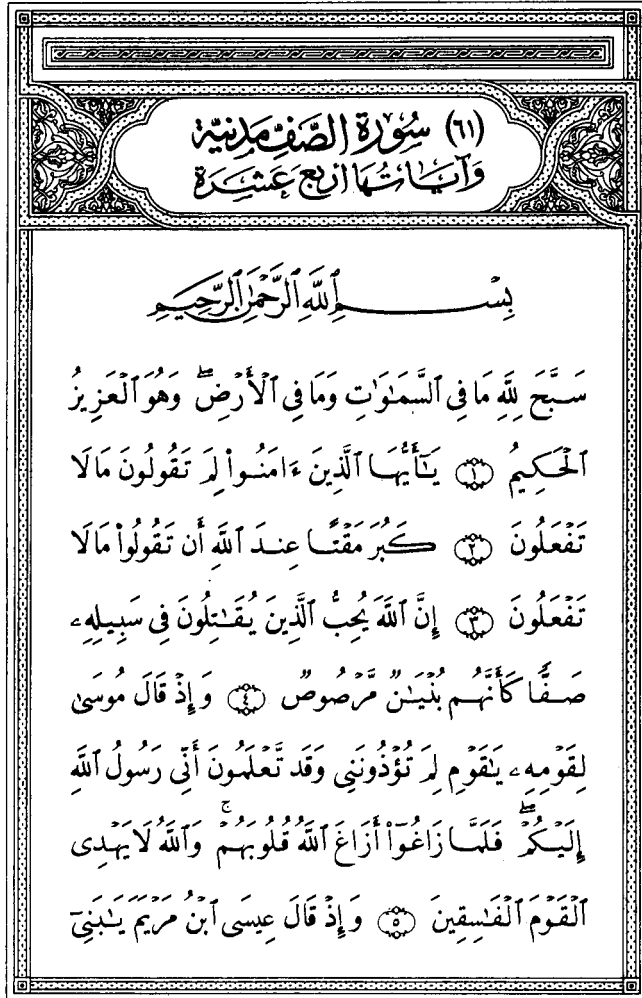 (٦١) سُورَةُ الصَّفِّ مَدَنِيَّة
وَآيَاتُهَا أَرْبَعَ عَشِرَة
بِسْمِ ٱللَّهِ ٱلرَّحْمَٰنِ ٱلرَّحِيمِ
سَبَّحَ لِلَّهِ مَا فِى ٱلسَّمَٰوَٰتِ وَمَا فِى ٱلْأَرْضِۖ وَهُوَ ٱلْعَزِيزُ
ٱلْحَكِيمُ ۝١ يَٰٓأَيُّهَا ٱلَّذِينَ ءَامَنُوا۟ لِمَ تَقُولُونَ مَا لَا
تَفْعَلُونَ ۝٢ كَبُرَ مَقْتًا عِندَ ٱللَّهِ أَن تَقُولُوا۟ مَا لَا
تَفْعَلُونَ ۝٣ إِنَّ ٱللَّهَ يُحِبُّ ٱلَّذِينَ يُقَٰتِلُونَ فِى سَبِيلِهِۦ
صَفًّا كَأَنَّهُم بُنْيَٰنٌ مَّرْصُوصٌ ۝٤ وَإِذْ قَالَ مُوسَىٰ
لِقَوْمِهِۦ يَٰقَوْمِ لِمَ تُؤْذُونَنِى وَقَد تَّعْلَمُونَ أَنِّى رَسُولُ ٱللَّهِ
إِلَيْكُمْۖ فَلَمَّا زَاغُوٓا۟ أَزَاغَ ٱللَّهُ قُلُوبَهُمْۚ وَٱللَّهُ لَا يَهْدِى
ٱلْقَوْمَ ٱلْفَٰسِقِينَ ۝٥ وَإِذْ قَالَ عِيسَى ٱبْنُ مَرْيَمَ يَٰبَنِىٓ